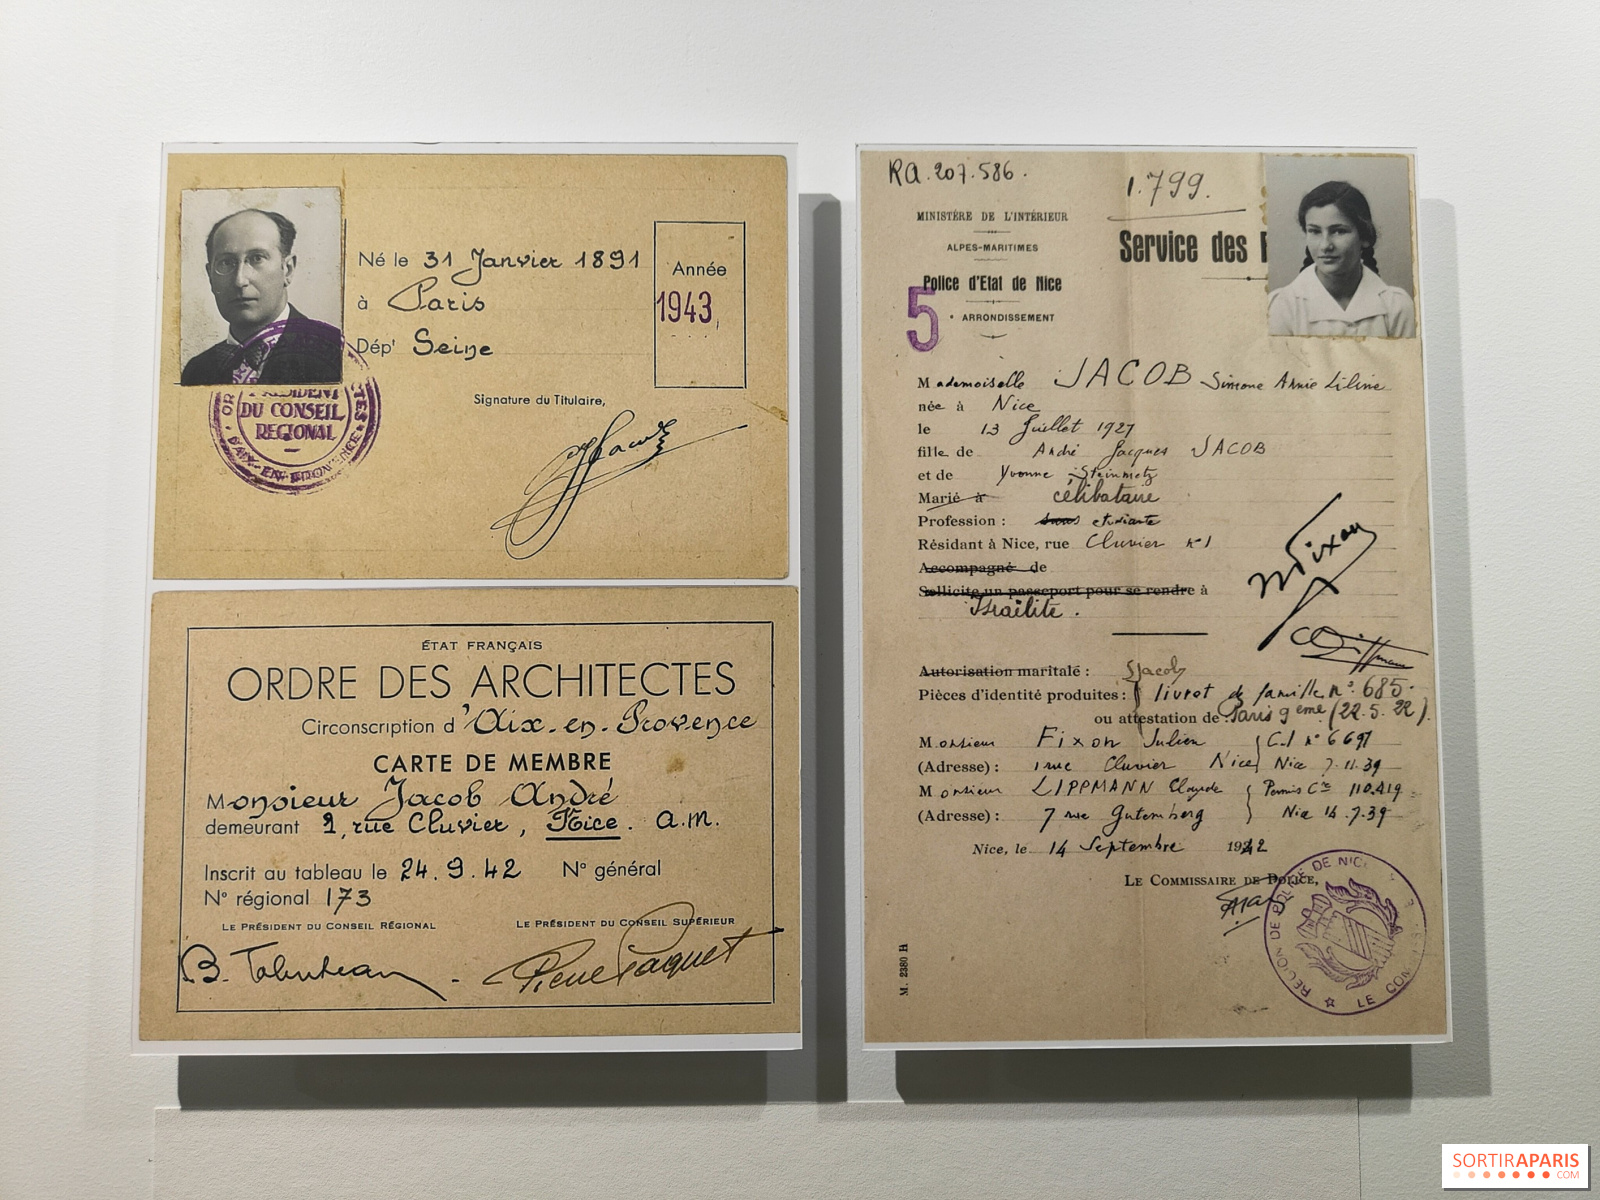 Né le 31 Janvier 1891
à Paris
Dépt Seine
Année
1943
Signature du Titulaire,
PRÉSIDENT
DU CONSEIL
REGIONAL
AIX-EN-PROVENCE
ÉTAT FRANÇAIS
ORDRE DES ARCHITECTES
Circonscription d'Aix-en-Provence
CARTE DE MEMBRE
Monsieur Jacob André
demeurant 1, rue Cluvier, Nice. a.m.
Inscrit au tableau le 24.9.42 N° général
N° régional 173
LE PRÉSIDENT DU CONSEIL RÉGIONAL
LE PRÉSIDENT DU CONSEIL SUPÉRIEUR
Pierre Paquet
RA.207.586.
1.799.
MINISTÈRE DE L'INTÉRIEUR
ALPES-MARITIMES
Service des
Police d'Etat de Nice
5
ARRONDISSEMENT
Mademoiselle JACOB Simone Annie Liline
née à Nice
le 13 Juillet 1927
fille de André Jacques JACOB
et de Yvonne Steinmetz
Marié à célibataire
Profession : sans etudiante
Résidant à Nice, rue Cluvier n°1
Accompagné de
Sollicite un passeport pour se rendre à
Israëlite.
Fixon
Autorisation maritale : SJacob
Pièces d'identité produites : livret de famille n°. 685.
ou attestation de : Paris 9eme (22.5.22).
Monsieur Fixon Julien C.I n° 6697
(Adresse) : 1 rue Cluvier Nice Nice 7.11.39
Monsieur LIPPMANN Claude Permis Cre 110.419
(Adresse) : 7 rue Gutemberg Nice 14.7.39
Nice, le 14 Septembre 1942
LE COMMISSAIRE DE POLICE,
RÉGION DE POLICE DE NICE
M. 2380 H
SORTIRAPARIS
.COM